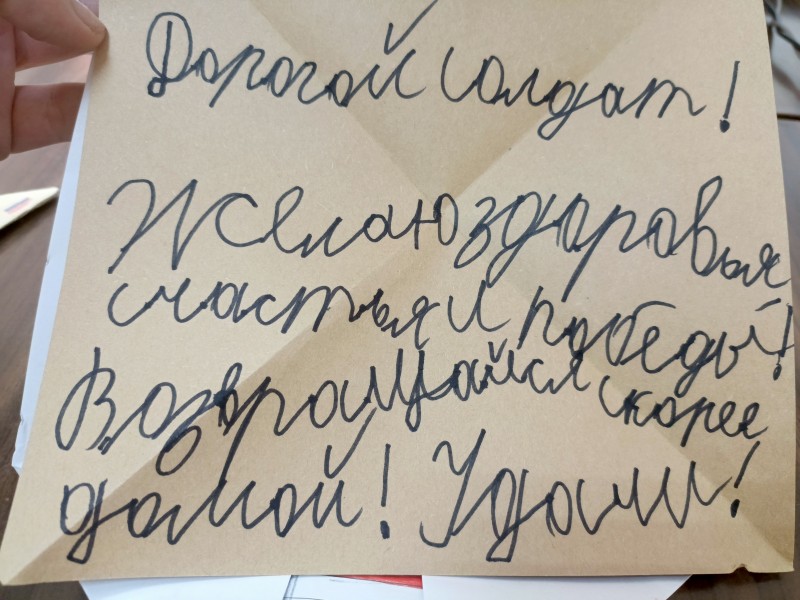 Дорогой солдат!
Желаю здоровья
счастья и победы!
Возвращайся скорее
домой! Удачи!